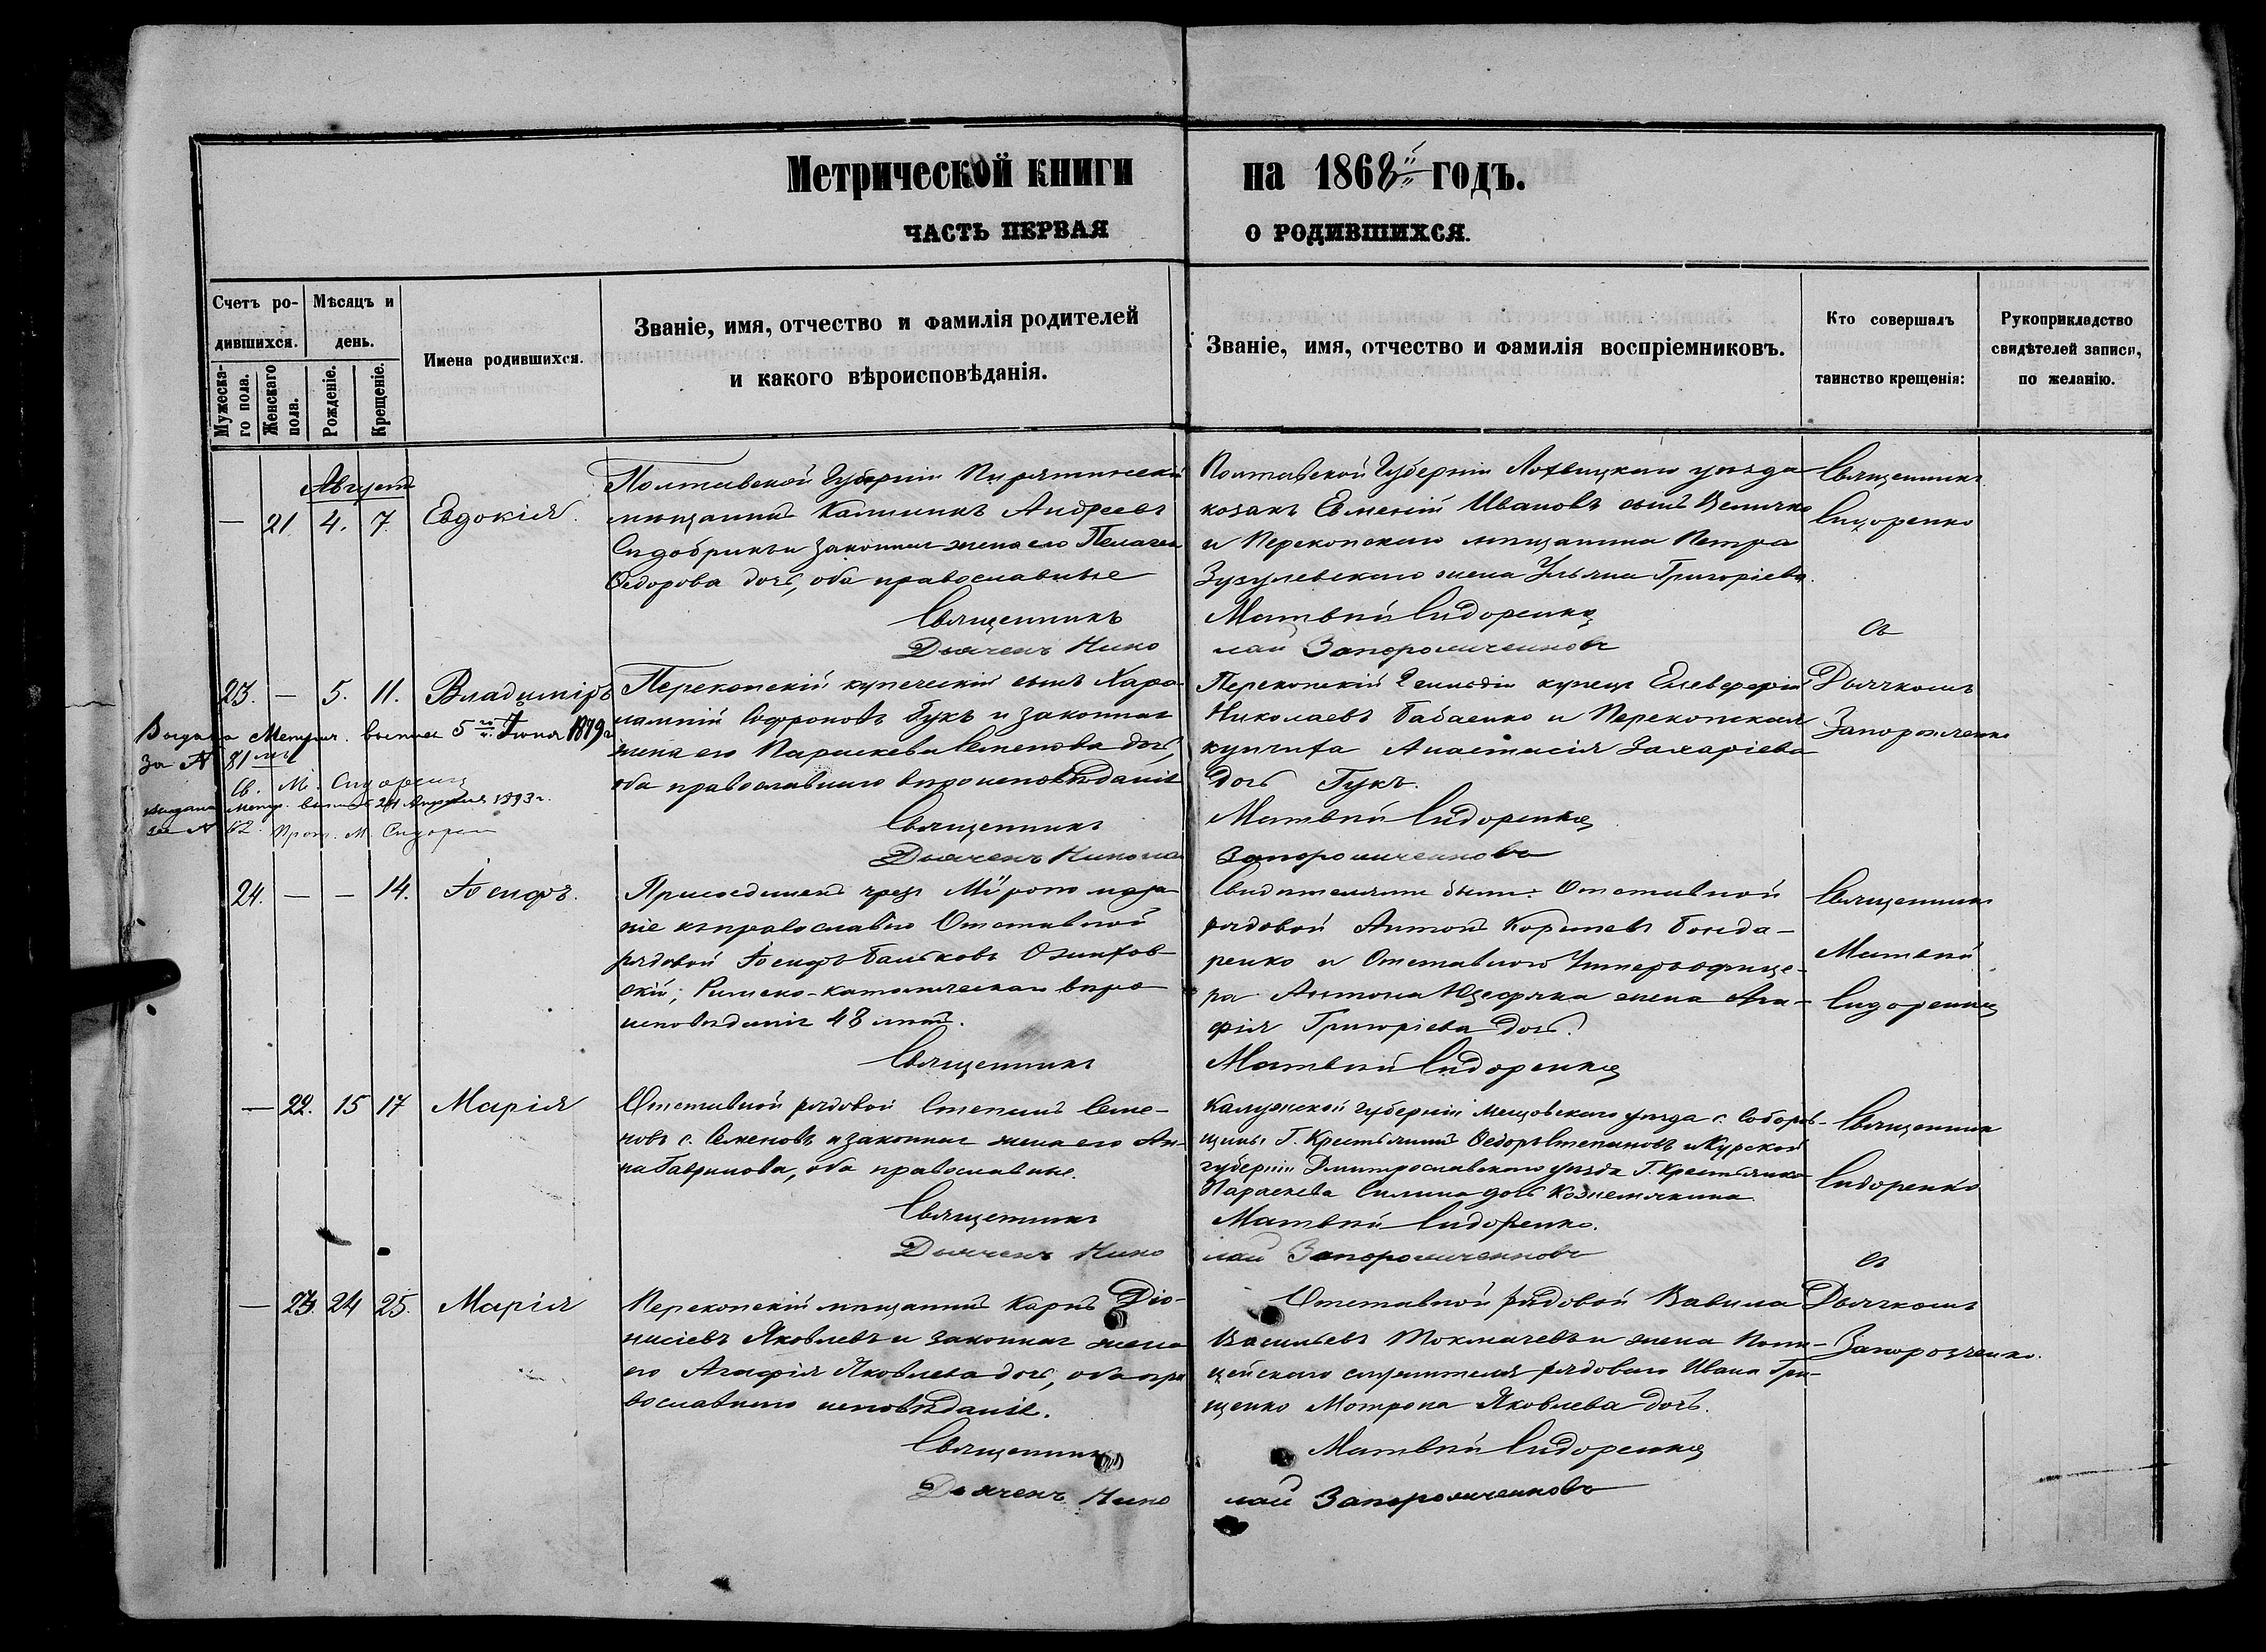 Метрической книги на 1868й годъ.
ЧАСТЬ ПЕРВАЯ О РОДИВШИХСЯ.
Счетъ ро-
дившихся.
Мѣсяцъ и
день.
Мужеска-
го пола.
Женскаго
пола.
Рожденіе.
Крещеніе.
Имена родившихся.
Званіе, имя, отчество и фамилія родителей
и какого вѣроисповѣданія.
Званіе, имя, отчество и фамилія воспріемниковъ.
Кто совершалъ
таинство крещенія:
Рукоприкладство
свидѣтелей записи,
по желанію.
Августъ
— 21. 4. 7. Евдокія.
Полтавской Губерніи Пирятинскій
мѣщанинъ Калиникъ Андреевъ
и законная жена его Пелагея
Ѳедорова дочь, оба православные
Священникъ
Дьячекъ Нико
Полтавской Губерніи Лохвицкаго уѣзда
козакъ Евменій Ивановъ сынъ Величко
и Перекопскаго мѣщанина Петра
Зузулевскаго жена Ульяна Григоріева.
Матвѣй Сидоренко
лай Запорожченковъ
Священникъ
Сидоренко
съ
23. — 5. 11. Владиміръ
Перекопскій купеческій сынъ Хара-
лампій Софроновъ Гукъ и законная
жена его Параскева Семенова дочь,
оба православнаго вѣроисповѣданія
Священникъ
Дьячекъ Никола
Перекопскій 2 гильдіи купецъ Елевферій
Николаевъ Бабаенко и Перекопская
купчиха Анастасія Захаріева
дочь Гукъ.
Матвѣй Сидоренко
Запорожченковъ
Дьячкомъ
Запорожченко
Выдана Метрич. выпись 5го Іюня 1879г
за № 81мъ
Св. М. Сидоренко
Выдана Метр. выпись 24 1893г.
за № 62. Прот. М. Сидорен
24. — — 14. Іосифъ.
Присоединенъ чрезъ Мѵропомаза-
ніе къ православію Отставной
рядовой Іосифъ
скій, Римско-католическаго вѣро-
исповѣданія 48 лѣтъ.
Священникъ
Свидѣтелями были: Отставной
рядовой Антонъ Корнѣевъ Бонда-
ренко и Отставного Унтеръ-офице-
ра Антона жена Ага-
фія Григоріева дочь.
Матвѣй Сидоренко
Священникъ
Матвѣй
Сидоренко
— 22. 15 17 Марія
Отставной рядовой Степанъ Семе-
новъ с. Семеновъ и законная жена его Ан-
на Гаврилова, оба православные.
Священникъ
Дьячекъ Нико
Калужской губерніи Мещовскаго уѣзда с.
щины Г. Крестьянинъ Ѳедоръ Степановъ и Курской
губерніи Дмитрославскаго уѣзда Г. Крестьянка
Параскева Силина дочь Кожемякина.
Матвѣй Сидоренко.
лай Запорожченковъ
Священникъ
Сидоренко
съ
— 23. 24 25. Марія
Перекопскій мѣщанинъ Карпъ Діо-
нисіевъ Яковлевъ и законная жена
его Агафія Яковлева дочь, оба пра
вославнаго исповѣданія.
Священникъ
Дьячекъ Нико
Отставной рядовой Вавила
Васильевъ Токмачевъ и жена Поли-
цейскаго служителя рядоваго Ивана Гри-
щенко Мотрона Яковлева дочь.
Матвѣй Сидоренко
лай Запорожченковъ
Дьячкомъ
Запорожченко.